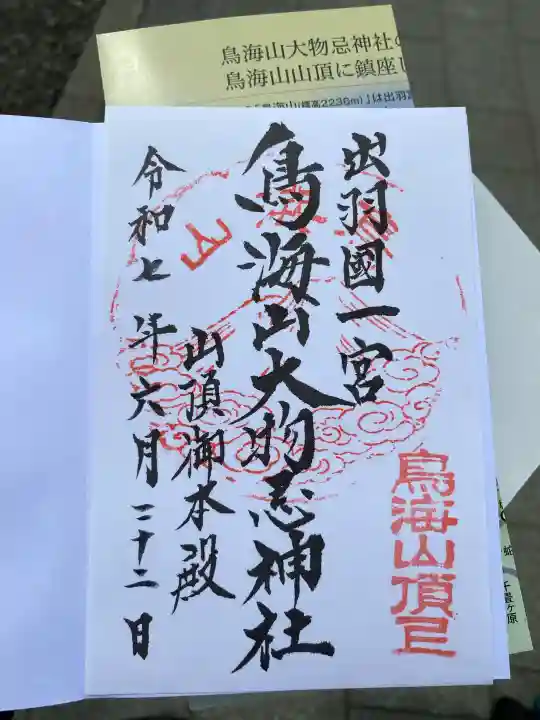 鳥海山大物忌神社の
鳥海山山頂に鎮座し
鳥海山(標高2236m)」は出羽
出羽國一宮
鳥海山大物忌神社
山頂御本殿
令和七年六月二十二日
鳥海山頂
千畳ヶ原